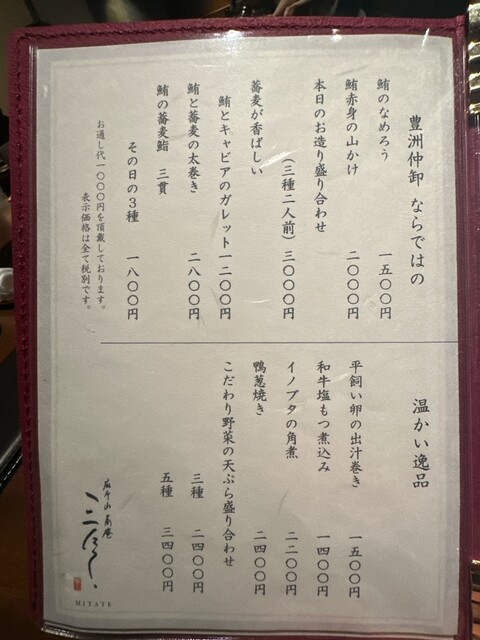 豊洲仲卸 ならではの
鮪のなめろう 一五〇〇円
鮪赤身の山かけ 二〇〇〇円
本日のお造り盛り合わせ
(三種二人前) 三〇〇〇円
蕎麦が香ばしい
鮪とキャビアのガレット 一二〇〇円
鮪と蕎麦の太巻き 二八〇〇円
鮪の蕎麦鮨 三貫
その日の3種 一八〇〇円
お通し代一〇〇〇円を頂戴しております。
表示価格は全て税別です。
温かい逸品
平飼い卵の出汁巻き 一五〇〇円
和牛塩もつ煮込み 一四〇〇円
イノブタの角煮 二二〇〇円
鴨葱焼き 二四〇〇円
こだわり野菜の天ぷら盛り合わせ
三種 二四〇〇円
五種 三四〇〇円
MITATE